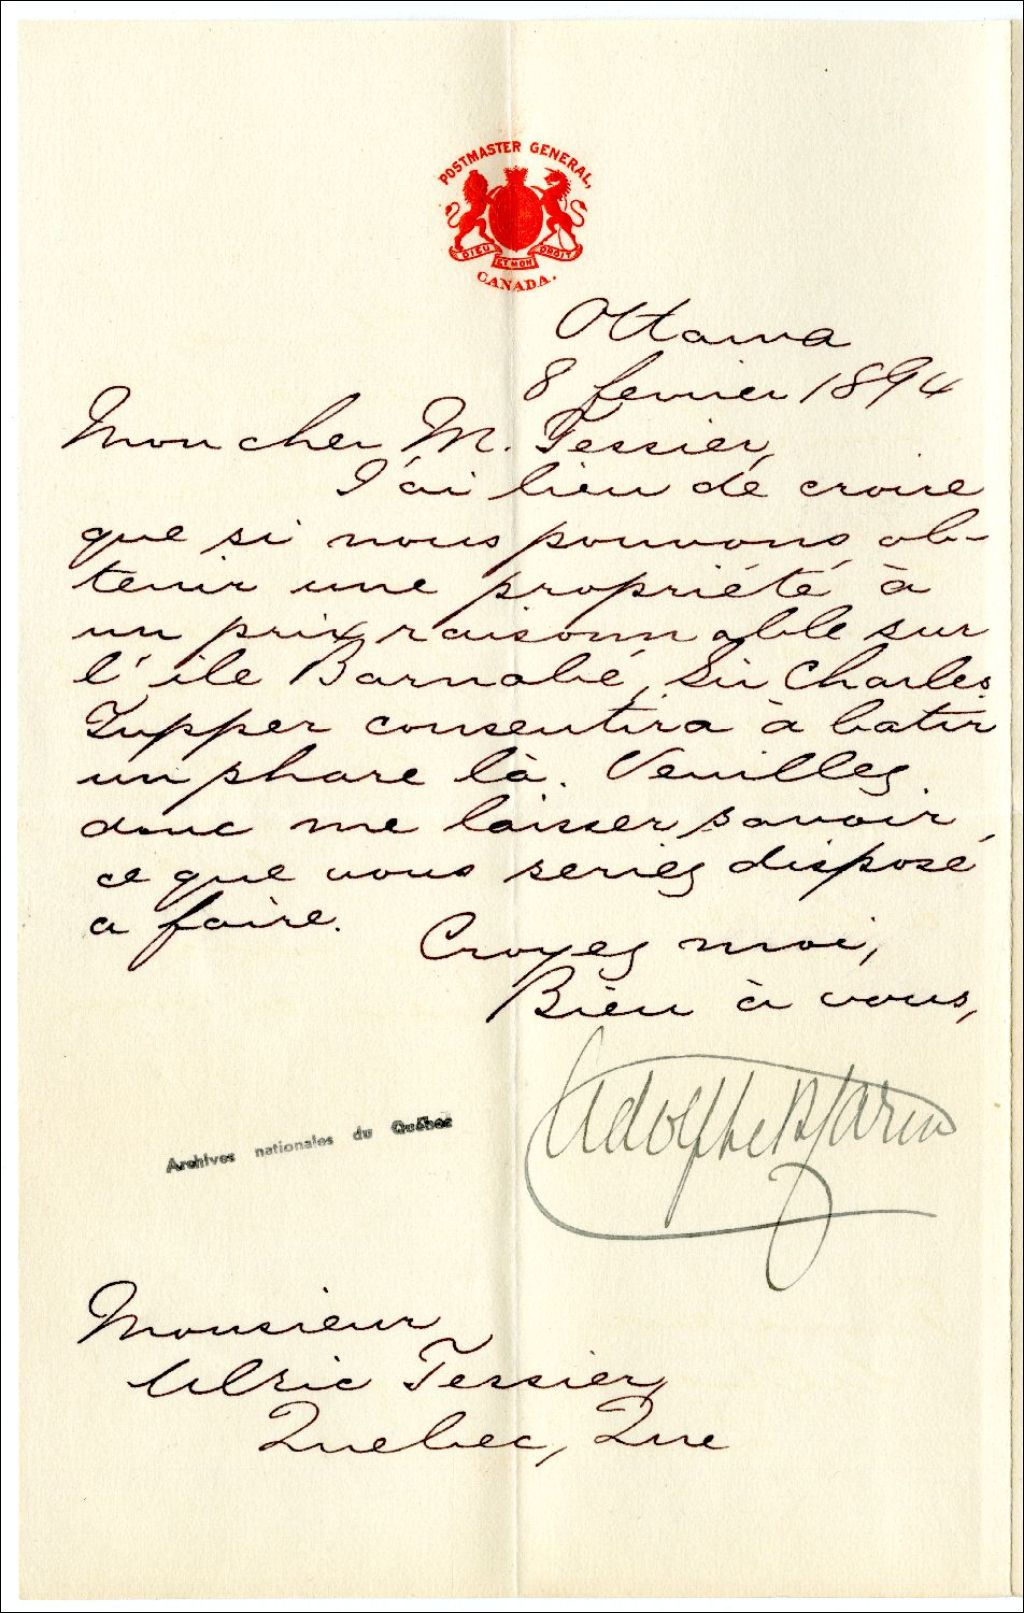 POSTMASTER GENERAL,
DIEU ET MON DROIT
CANADA.
Ottawa
8 fevrier 1894
Mon cher M. Tessier,
J'ai lieu de croire
que si nous pouvons ob-
tenir une propriété à
un prix raisonnable sur
l'île Barnabé, Sir Charles
Tupper consentira à batir
un phare là. Veuillez
donc me laisser savoir
ce que vous seriez disposé
a faire.
Croyez moi,
Bien à vous,
Adolphe P. Caron
Archives nationales du Québec
Monsieur
Ulric Tessier,
Quebec, Que